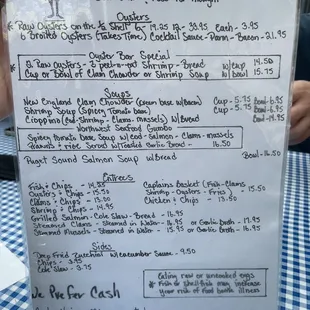 Oysters
* Raw Oysters on the ½ Shell 6- 19.25 12- 38.95 Each - 3.95
6 Broiled Oysters (Takes Time) Cocktail Sauce - Parm - Bacon - 21.95
Oyster Bar Special
* 2 Raw Oysters - 2 peel-n-eat Shrimp - Bread w/cup 14.50
Cup or Bowl of Clam Chowder or Shrimp Soup w/Bowl 15.75
Soups
New England Clam Chowder (cream base w/Bacon) Cup - 5.75 Bowl - 6.95
Shrimp Soup (Spicy Tomato Base) Cup - 5.75 Bowl - 6.95
Cioppino (Cod - Shrimp - Clams - mussels) w/Bread Bowl - 14.95
Northwest Seafood Gumbo
Spicy tomato Base Soup w/ Cod - Salmon - Clams - mussels
Prawns + rice Served w/Toasted Garlic Bread - 16.50
Puget Sound Salmon Soup w/Bread Bowl - 16.50
Entrees
Fish + Chips - 14.25
Oysters + Chips - 15.50
Clams + Chips - 13.00
Shrimp + Chips - 14.95
Captains Basket (Fish - Clams
Shrimp - Oysters - Fries) 15.50
Chicken + Chips - 13.50
Grilled Salmon - Cole Slaw - Bread - 16.95
Steamed Clams - Steamed in Water - 16.95 or Garlic Broth - 17.95
Steamed Mussels - Steamed in Water - 15.95 or Garlic Broth - 16.95
Sides
Deep Fried Zucchini w/cucumber Sauce - 9.50
Chips - 3.95
Cole Slaw - 3.75
We Prefer Cash
Eating raw or undercooked eggs
* Fish or shellfish may increase
your risk of food borne illness